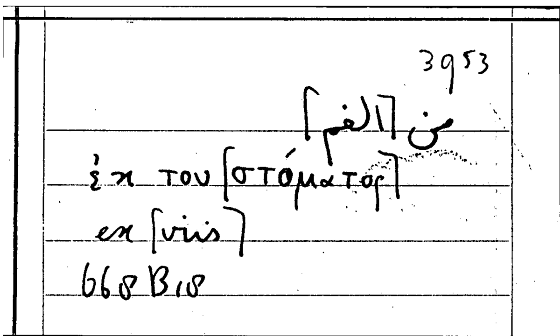 3953
من [الفم]
ἐκ του [στόματος]
ex [viis]
668 B18